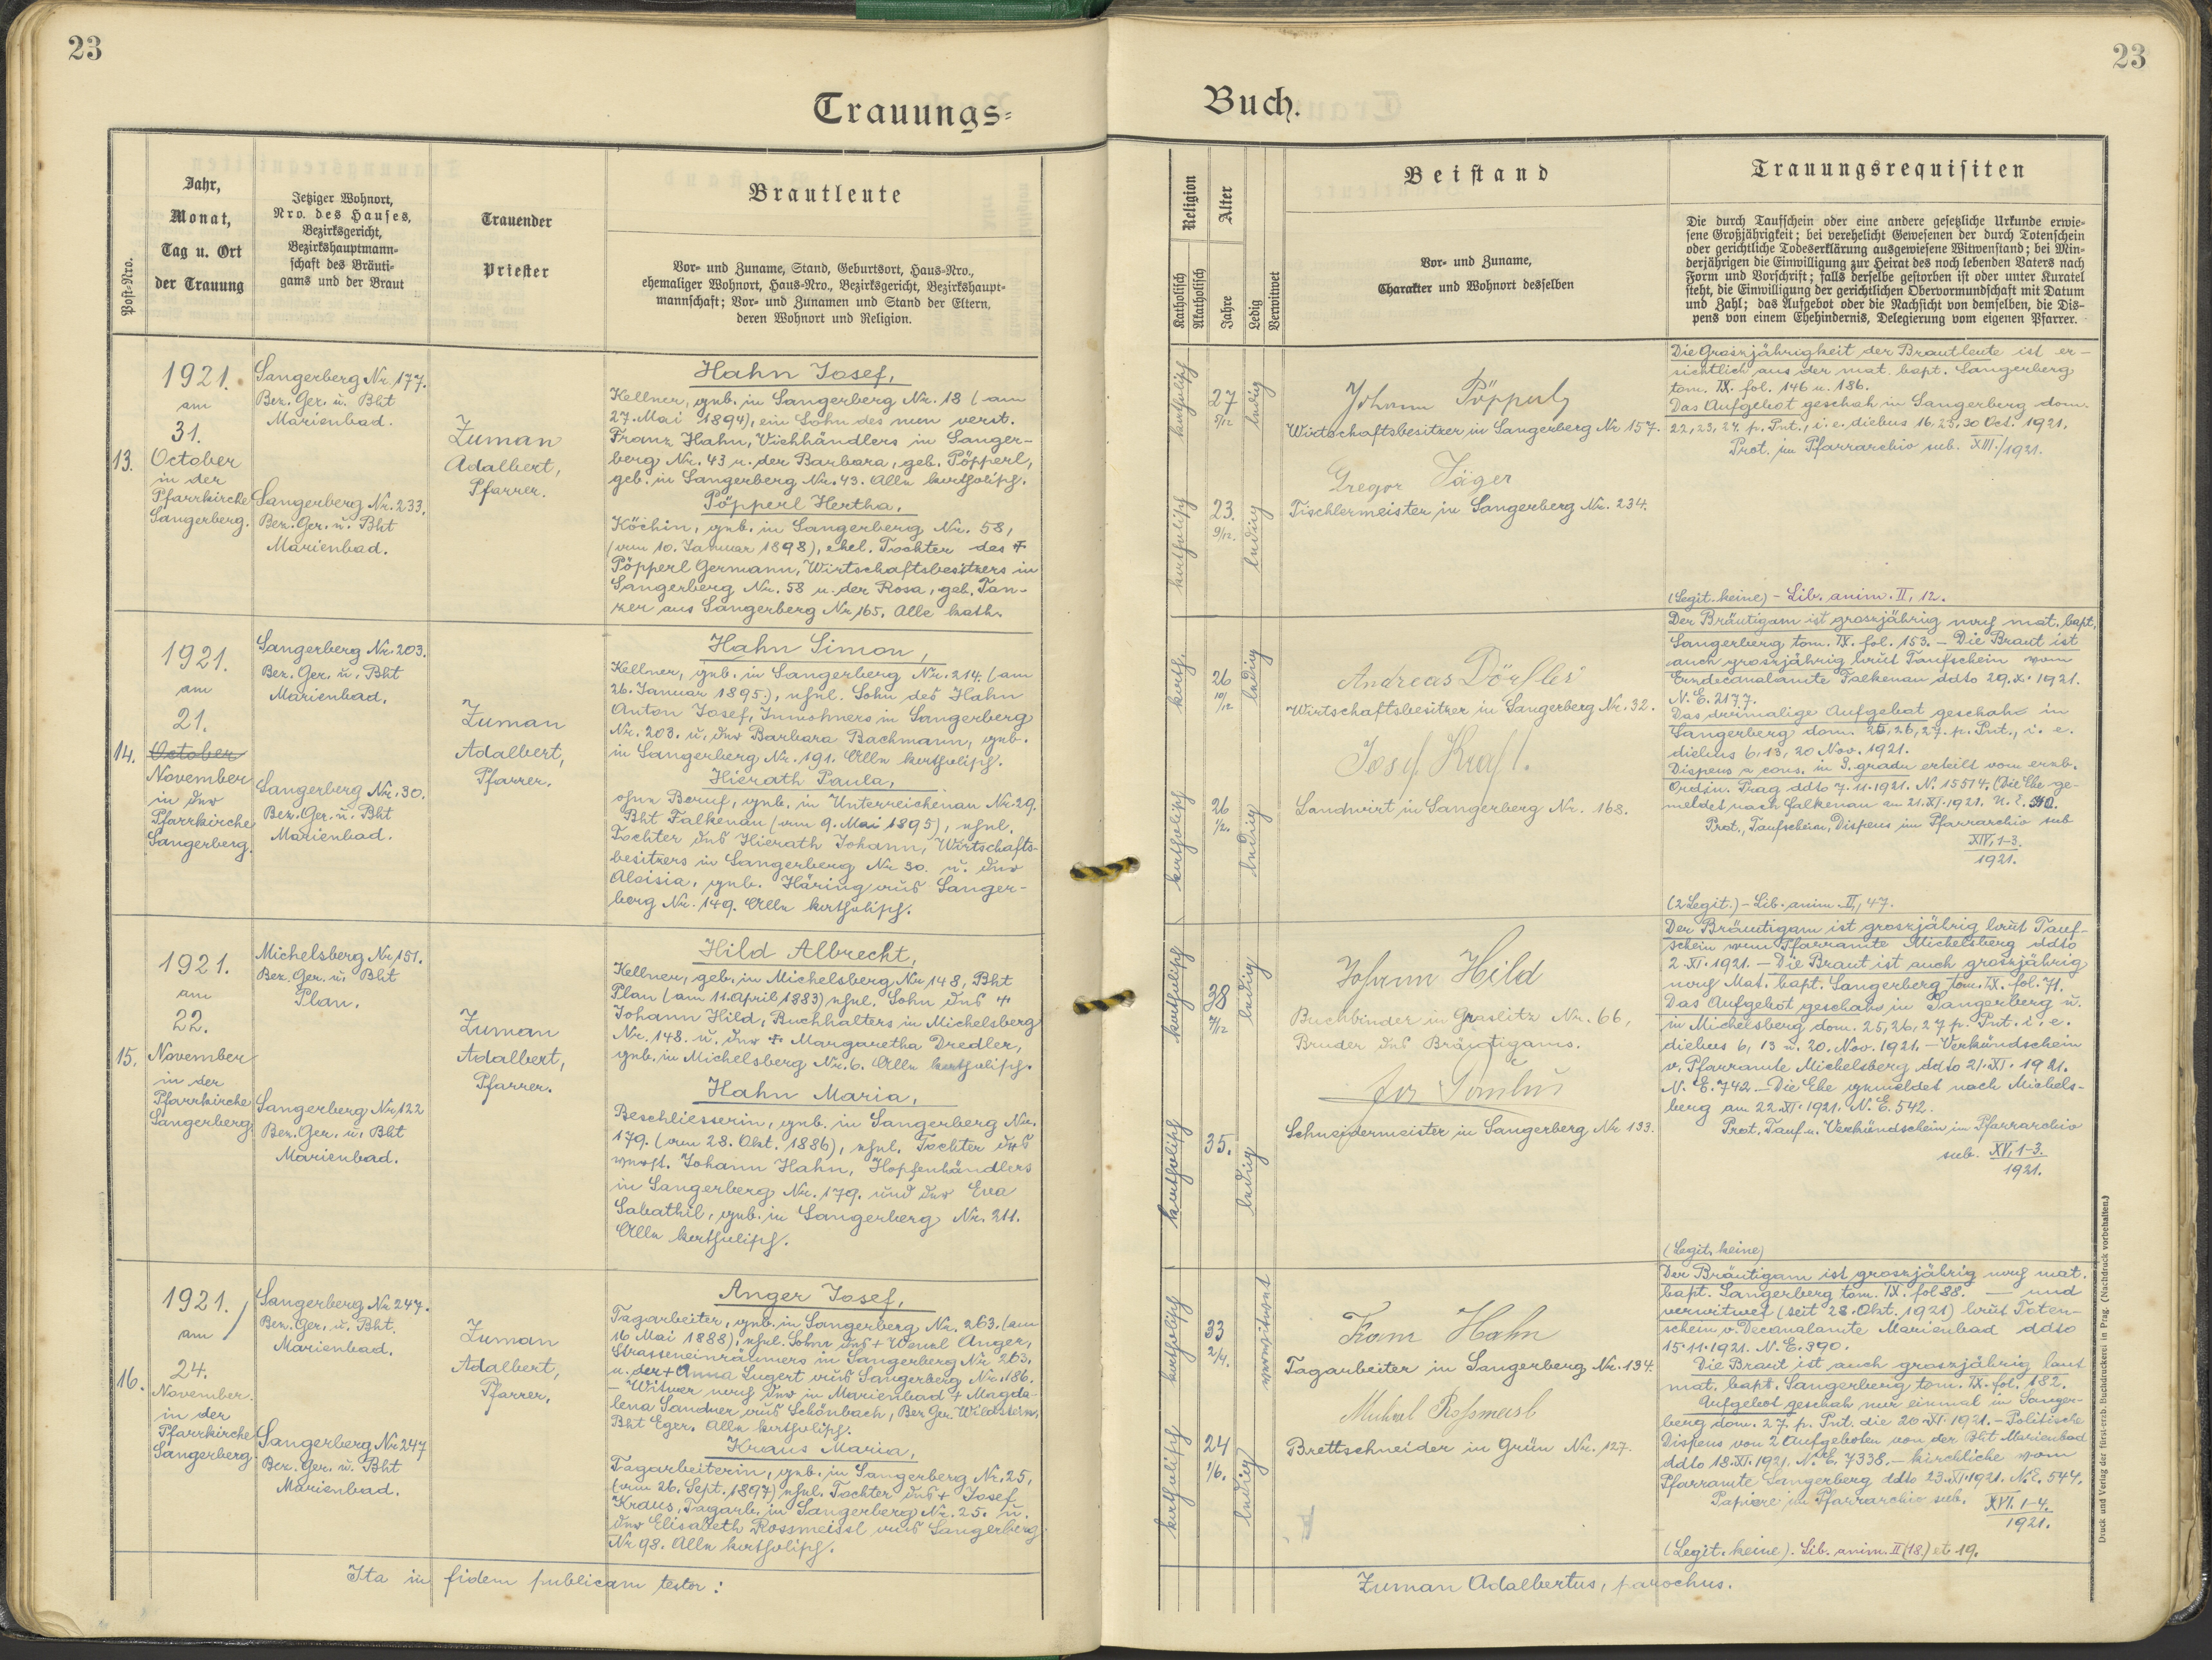 23
Trauungs=
Post-Nro.
Jahr,
Monat,
Tag u. Ort
der Trauung
Jetziger Wohnort,
Nro. des Hauses,
Bezirksgericht,
Bezirkshauptmann=
schaft des Bräuti=
gams und der Braut
Trauender
Priester
Brautleute
Vor- und Zuname, Stand, Geburtsort, Haus-Nro.,
ehemaliger Wohnort, Haus-Nro., Bezirksgericht, Bezirkshaupt=
mannschaft; Vor- und Zunamen und Stand der Eltern,
deren Wohnort und Religion.
13.
1921.
am
31.
October
in der
Pfarrkirche
Sangerberg.
Sangerberg Nr. 177.
Bez. Ger. u. Bht
Marienbad.
Sangerberg Nr. 233.
Bez. Ger. u. Bht
Marienbad.
Zuman
Adalbert,
Pfarrer.
Hahn Josef,
Kellner, geb. in Sangerberg Nr. 18 (am
27. Mai 1894), ein Sohn des nun verst.
Franz Hahn, Viehhändlers in Sanger-
berg Nr. 43 u. der Barbara, geb. Pöpperl,
geb. in Sangerberg Nr. 43. Alle katholisch.
Pöpperl Hertha,
Köchin, geb. in Sangerberg Nr. 58,
(am 10. Januar 1898), ehel. Tochter des +
Pöpperl Germann, Wirtschaftsbesitzers in
Sangerberg Nr. 58 u. der Rosa, geb. Tan-
zer aus Sangerberg Nr 165. Alle kath.
14.
1921.
am
21.
October
November
in der
Pfarrkirche
Sangerberg.
Sangerberg Nr. 203.
Bez. Ger. u. Bht
Marienbad.
Sangerberg Nr. 30.
Bez. Ger. u. Bht
Marienbad.
Zuman
Adalbert,
Pfarrer.
Hahn Simon,
Kellner, geb. in Sangerberg Nr. 214. (am
26. Januar 1895.), ehel. Sohn des Hahn
Anton Josef, Inwohners in Sangerberg
Nr. 203. u. der Barbara Bachmann, geb.
in Sangerberg Nr. 191. Alle katholisch.
Hierath Paula,
ohne Beruf, geb. in Unterreichenau Nr 29.
Bht Falkenau (am 9. Mai 1895), ehel.
Tochter des Hierath Johann, Wirtschafts-
besitzers in Sangerberg Nr 30. u. der
Aloisia, geb. Häring aus Sanger-
berg Nr. 149. Alle katholisch.
15.
1921.
am
22.
November
in der
Pfarrkirche
Sangerberg
Michelsberg Nr 151.
Bez. Ger. u. Bht
Plan.
Sangerberg Nr 122
Bez. Ger. u. Bht
Marienbad.
Zuman
Adalbert,
Pfarrer.
Hild Albrecht,
Kellner, geb. in Michelsberg Nr 148, Bht
Plan (am 11. April 1883) ehel. Sohn des +
Johann Hild, Buchhalters in Michelsberg
Nr. 148. u. der + Margaretha Dredler,
geb. in Michelsberg Nr. 6. Alle katholisch.
Hahn Maria,
Beschliesserin, geb. in Sangerberg Nr.
179. (am 28. Okt. 1886), ehel. Tochter des
verst. Johann Hahn, Hopfenhändlers
in Sangerberg Nr. 179. und der Eva
Sabathil, geb. in Sangerberg Nr. 211.
Alle katholisch.
16.
1921.
am
24.
November
in der
Pfarrkirche
Sangerberg
Sangerberg Nr 247.
Bez. Ger. u. Bht.
Marienbad.
Sangerberg Nr 247
Bez. Ger. u. Bht
Marienbad.
Zuman
Adalbert,
Pfarrer.
Anger Josef,
Tagarbeiter, geb. in Sangerberg Nr. 263. (am
16 Mai 1888), ehel. Sohn des + Wenzl Anger,
Strasseneinräumers in Sangerberg Nr 263.
u. der + Anna Lugert aus Sangerberg Nr. 186.
– Witwer nach der in Marienbad + Magda-
lena Sandner aus Schönbach, Bez Ger. Wildstein,
Bht Eger. Alle katholisch.
Kraus Maria,
Tagarbeiterin, geb. in Sangerberg Nr. 25,
(am 26. Sept. 1897) ehel. Tochter des + Josef
Kraus, Tagarb. in Sangerberg Nr. 25. u.
der Elisabeth Rossmeissl aus Sangerberg
Nr 98. Alle katholisch.
Ita in fidem publicam testor:
23
Buch.
Religion
Katholisch
Akatholisch
Alter
Jahre
Ledig
Verwitwet
Beistand
Vor- und Zuname,
Charakter und Wohnort desselben
Trauungsrequisiten
Die durch Taufschein oder eine andere gesetzliche Urkunde erwie=
sene Großjährigkeit; bei verehelicht Gewesenen der durch Totenschein
oder gerichtliche Todeserklärung ausgewiesene Witwenstand; bei Min=
derjährigen die Einwilligung zur Heirat des noch lebenden Vaters nach
Form und Vorschrift; falls derselbe gestorben ist oder unter Kuratel
steht, die Einwilligung der gerichtlichen Obervormundschaft mit Datum
und Zahl; das Aufgebot oder die Nachsicht von demselben, die Dis=
pens von einem Ehehindernis, Delegierung vom eigenen Pfarrer.
katholisch
27
5/12
ledig
Johann Pöpperl
Wirtschaftsbesitzer in Sangerberg Nr 157.
katholisch
23.
9/12.
ledig
Gregor Jäger
Tischlermeister in Sangerberg Nr. 234.
Die Grossjährigkeit der Brautleute ist er-
sichtlich aus der mat. bapt. Sangerberg
tom. IX. fol. 146 u. 186.
Das Aufgebot geschah in Sangerberg dom.
22, 23, 24. p. Pnt., i. e. diebus 16, 23, 30 Oct. 1921.
Prot. im Pfarrarchiv sub. XIII./1921.
(Legit. keine) – Lib. anim. II, 12.
kath.
26
10/12
ledig
Andreas Dörfler
Wirtschaftsbesitzer in Sangerberg Nr. 32.
katholisch
26
ledig
Josef Kraft.
Landwirt in Sangerberg Nr. 168.
Der Bräutigam ist grossjährig nach mat. bapt.
Sangerberg tom. IX. fol. 153. – Die Braut ist
auch grossjährig laut Taufschein vom
Erzdecanalamte Falkenau ddto 29. X. 1921.
N. E. 2177.
Das dreimalige Aufgebot geschah in
Sangerberg dom. 25, 26, 27. p. Pnt., i. e.
diebus 6, 13, 20 Nov. 1921.
Dispens a cons. in 3. gradu erteilt vom erzb.
Ordin. Prag ddto 7. 11. 1921. N. 15514. (Die Ehe ge-
meldet nach Falkenau am 21. XI. 1921. N. E. 540.
Prot., Taufschein, Dispens im Pfarrarchiv sub
XIV, 1-3.
1921.
(2 Legit.) – Lib. anim. II, 47.
katholisch
38
7/12
ledig
Johann Hild
Buchbinder in Graslitz Nr. 66,
Bruder des Bräutigams.
katholisch
35.
ledig
Schneidermeister in Sangerberg Nr 133.
Der Bräutigam ist grossjährig laut Tauf-
schein vom Pfarramte Michelsberg ddto
2. XI. 1921. – Die Braut ist auch grossjährig
nach Mat. bapt. Sangerberg tom. IX. fol. 71.
Das Aufgebot geschah in Sangerberg u.
in Michelsberg dom. 25, 26, 27 p. Pnt. i. e.
diebus 6, 13 u. 20. Nov. 1921. – Verkündschein
v. Pfarramte Michelsberg ddto 21. XI. 1921.
N. E. 742. – Die Ehe gemeldet nach Michels-
berg am 22. XI. 1921. N. E. 542.
Prot. Tauf u. Verkündschein im Pfarrarchiv
sub. XV, 1-3.
1921.
(Legit. keine)
katholisch
33
verwitwet
Franz Hahn
Tagarbeiter in Sangerberg Nr. 134.
katholisch
24
1/6.
ledig
Michael Roßmeisl
Brettschneider in Grün Nr. 127.
Der Bräutigam ist grossjährig nach mat.
bapt. Sangerberg tom. IX. fol 88. — und
verwitwet (seit 28. Okt. 1921) laut Toten-
schein v. Decanalamte Marienbad ddto
15. 11. 1921. N. E. 390.
Die Braut ist auch grossjährig laut
mat. bapt. Sangerberg tom. IX. fol. 182.
Aufgebot geschah nur einmal in Sanger-
berg dom. 27. p. Pnt. die 20. XI. 1921. – Politische
Dispens von 2 Aufgeboten von der Bht Marienbad
ddto 18. XI. 1921. N. E. 7338. – kirchliche vom
Pfarramte Sangerberg ddto 23. XI. 1921. N. E. 544.
Papiere im Pfarrarchiv sub. XVI. 1-4.
1921.
(Legit. keine). Lib. anim. II (18.) et 19.
Zuman Adalbertus, parochus.
Druck und Verlag der fürst-erzb. Buchdruckerei in Prag. (Nachdruck vorbehalten.)